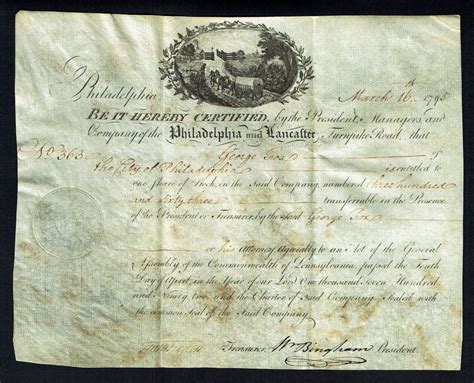 Philadelphia March 16th 1795
BE IT HEREBY CERTIFIED, by the President, Managers, and
Company of the Philadelphia and Lancaster Turnpike Road, that
No. 363 George Fox of
the City of Philadelphia is entitled to
one Share of Stock, in the Said Company, numbered three hundred
and sixty three transferrable in the Presence
of the President or Treasurer, by the said George Fox
or his Attorney, Agreeably to an Act of the General
Assembly of the Commonwealth of Pennsylvania, passed the Tenth
Day of April, in the Year of our Lord One thousand Seven Hundred
and Ninety two, and the Charter of Said Company, Sealed with
the common Seal of the Said Company.
Treasurer, Wm Bingham President.